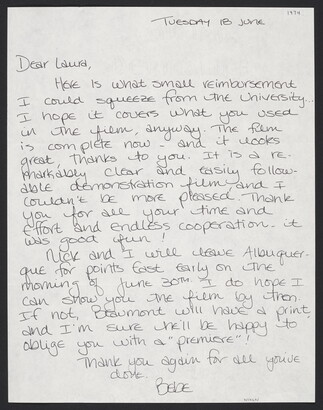 1974
TUESDAY 18 JUNE
Dear Laura,
Here is what small reimbursement
I could squeeze from the University...
I hope it covers what you used
in the film, anyway. The film
is complete now - and it looks
great, thanks to you. It is a re-
markably clear and easily follow-
able demonstration film and I
couldn't be more pleased. Thank
you for all your time and
effort and endless cooperation - it
was good fun!
Nick and I will leave Albuquer-
que for points East early on the
morning of June 30th. I do hope I
can show you the film by then.
If not, Beaumont will have a print,
and I'm sure he'll be happy to
oblige you with a "premiere"!
Thank you again for all you've
done.
BEBE